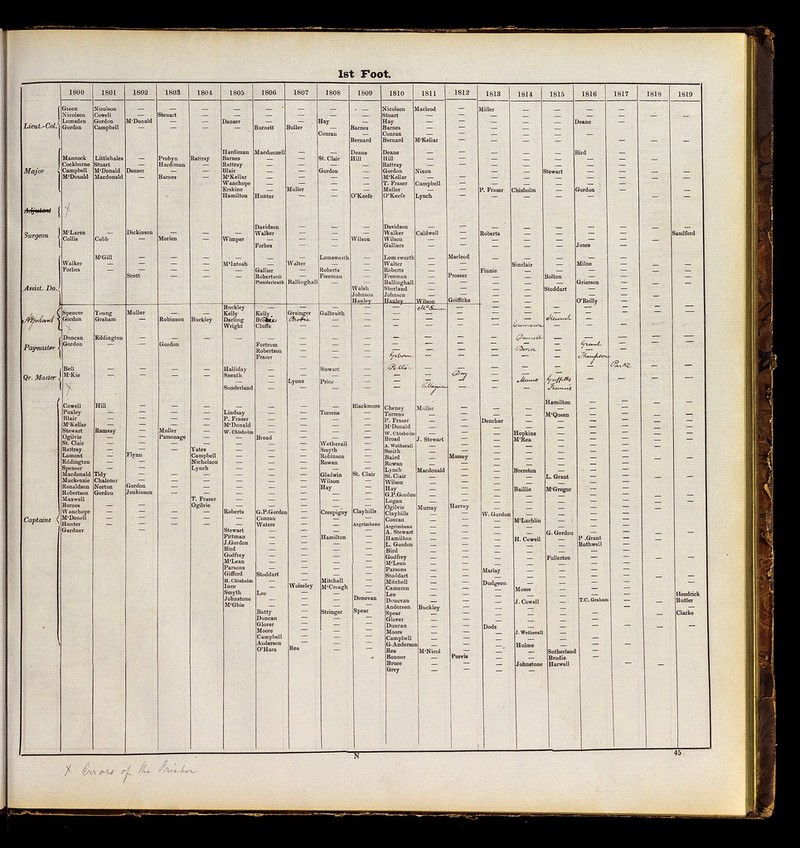 1st Foot.
1800 1801 1802 1803 1804 1805 1806 1807 1808 1809 1810 1811 1812 1813 1814 1815 1816 1817 1818 1819
Green Nicolson — — — — — — — — Nicolson Macleod — Miller — — — — — —
Nicolson Cowell — Steuart — — — — — — Stuart
Lieut.-Col. Lumsden Gordon M'Donald — — Danser — — Hay — Hay — — — — — Deane
Gordon Campbell — — — — Burnett Buller — Barnes Barnes
Conran — Conran
Bernard Bernard M'Kellar
Hardiman Macdonnell — — Deane Deane — — — — — Bird
Mannock Littlehales — Probyn Rattray Barnes — — St. Clair Hill Hill
Cockburne Stuart — Hardiman — Rattray — — — — Rattray
Major Campbell M'Donald Danser — — Blair — — Gordon — Gordon Nixon — — — Stewart
M'Donald Macdonald — Barnes — M'Kellar — — — — M'Kellar
Wanchope — — — — T. Fraser Campbell
Erskine — Muller — — Muller — — P. Fraser Chisholm — Gordon
Hamilton Hunter — — O'Keefe O'Keefe Lynch
Adjutant
Davidson — — — — Davidson
Surgeon M'Laren — Dickinson — — — Walker — — — Walker Caldwell — Roberts — — — — — Sandford
Collis Cobb — Morlen — Wimper — — — Wilson Wilson
Forbes — — — Galliers — — — — — Jones
M'Gill — — — — — — Lomsworth — Lomsworth — Macleod
Walker — — — — M'Intosh — Walter — — Walter — — — Sinclair — Milne
Forbes — — — — — Gallier — Roberts — Roberts — — Finnie
Scott — — — Robertson — Freeman — Freeman — Prosser — — Bolton
Assist. Do. Plenderleath Ballinghall — — Ballinghall — — — — — Grierson
Walsh Shorland — — — — Stoddart
Johnson Johnson
Hanley Hanley Wilson Griffiths — — — O'Reilly
Buckley
Adjutant Spencer Young Muller — — Kelly Kelly Grainger Galbraith
Gordon Graham — Robinson Buckley Darling
Wright Cluffe
Duncan Eddington
Paymaster Gordon — — Gordon — — Fortrum
Robertson
Fraser
Bell — — — — Halliday — — Stewart
Qr. Master M'Kie — — — — Sneath
Lyons Price
Sunderland
Cowell Hill — — — — — — — Blackmore Cheney Muller — — — Hamilton
Puxley — — — — Lindsay — — Torrens — Torrens
Blair — — — — P. Fraser — — — — P. Fraser — — — — M'Queen
M'Kellar — — — — M'Donald — — — — M'Donald — — Denchar
Stewart Ramsay — Muller — W. Chisholm — — — — W. Chisholm — — — Hopkins
Ogilvie — — Parsonage — — Broad — — — Broad J. Stewart — — M'Rea
St. Clair — — — — — — — Wetherall — A. Wetherall
Rattray — — — Yates — — — Smyth — Smith
Lamont — Flynn — Campbell — — — Robinson — Baird — Massey
Eddington — — — Nicholson — — — Rowan — Rowan
Spencer — — — Lynch — — — — — Lynch Macdonald — — Brereton
Macdonald Tidy — — — — — — Gladwin St. Clair St. Clair — — — — L. Grant
Mackenzie Chaloner — — — — — — Wilson — Wilson
Ronaldson Norton Gordon — — — — — Hay — Hay — — — Baillie M'Gregor
Robertson Gordon Jenkinson — — — — — — — G.P.Gordon
Maxwell — — — T. Fraser — — — — — Logan
Barnes — — — Ogilvie — — — — — Ogilvie Murray Harvey
Captains Wanchope — — — — Roberts G.P.Gordon — Crespigny Clayhills Clayhills — — W. Gordon
M'Donell — — — — — Conran — — — Conran — — — M'Lachlin
Hunter — — — — — Waters — — Argrimbeau Argrimbeau
Gardner — — — — Stewart — — — — A. Stewart — — — — G. Gordon
Pittman — — Hamilton — Hamilton — — — H. Cowell — P.Grant
J.Gordon — — — — L. Gordon — — — — — Rothwell
Bird — — — — Bird
Godfrey — — — — Godfrey — — — — Fullerton
M'Lean — — — — M'Lean
Parsons — — — — Parsons — — Marlay
Gifford Stoddart — — — Stoddart
H. Chisholm — — Mitchell — Mitchell — — Dudgeon
Ince — Wolseley M'Creagh — Cameron — — — Mosse
Smyth Lee — — — Lee — — — — — — — — Hendrick
Johnstone — — — Donovan Donovan — — — J. Cowell — T.C. Graham — — Butler
M'Ghie — — — — Anderson Buckley
Batty — Stringer Spear Spear — — — — — — — — Clarke
Duncan — — — Glover
Glover — — — Duncan — — Dods
Moore — — — Moore — — — J. Wetherall
Campbell — — — Campbell
Anderson — — — G.Anderson — — — Hulme
O'Hara Rea — — Rea M'Nicol — — — Sutherland
Bonner — Purvis — — Brodie
Bruce — — — Johnstone Harwell
Grey
N 45
X Errors of the Printer